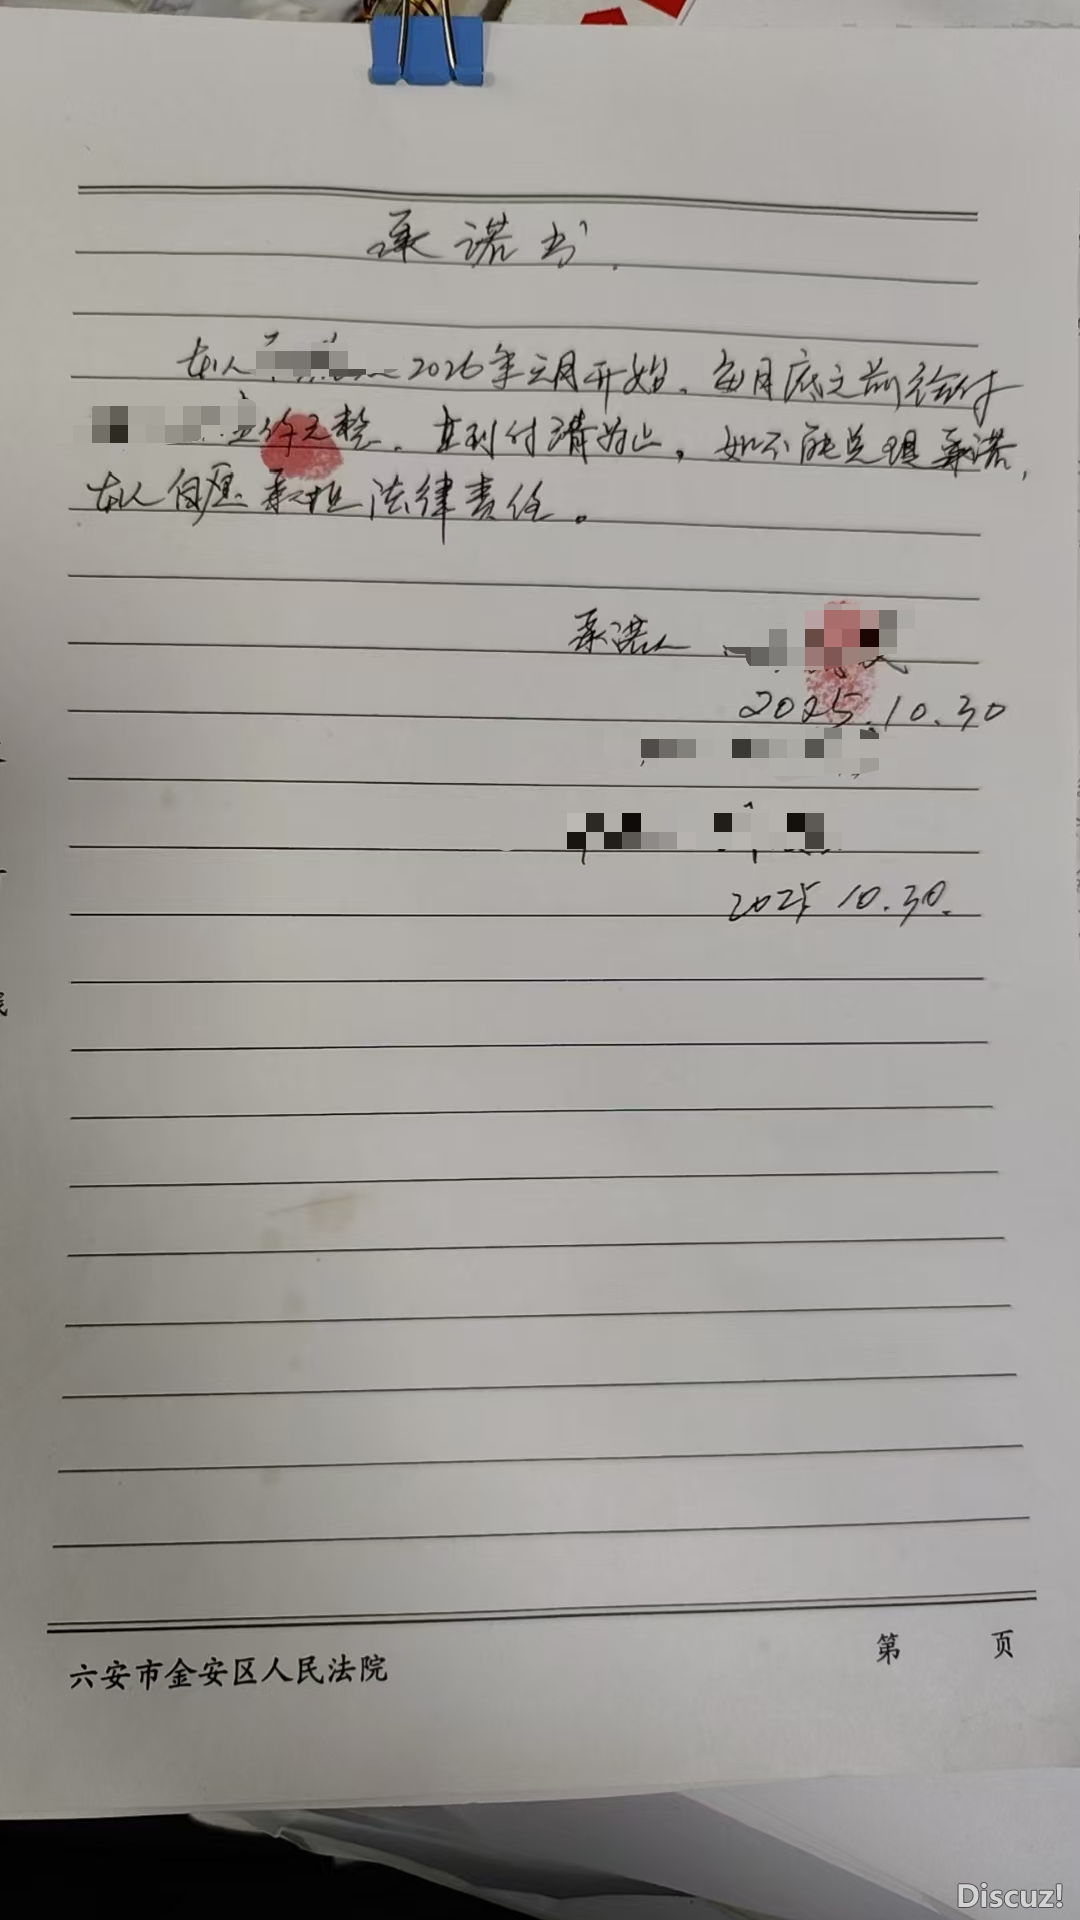 承诺书
本人 2026年元月开始，每月底之前给付
仟元整，直到付清为止，如不能兑现承诺，
本人自愿承担法律责任。
承诺人
2025.10.30
2025 10.30.
六安市金安区人民法院
第 页
Discuz!